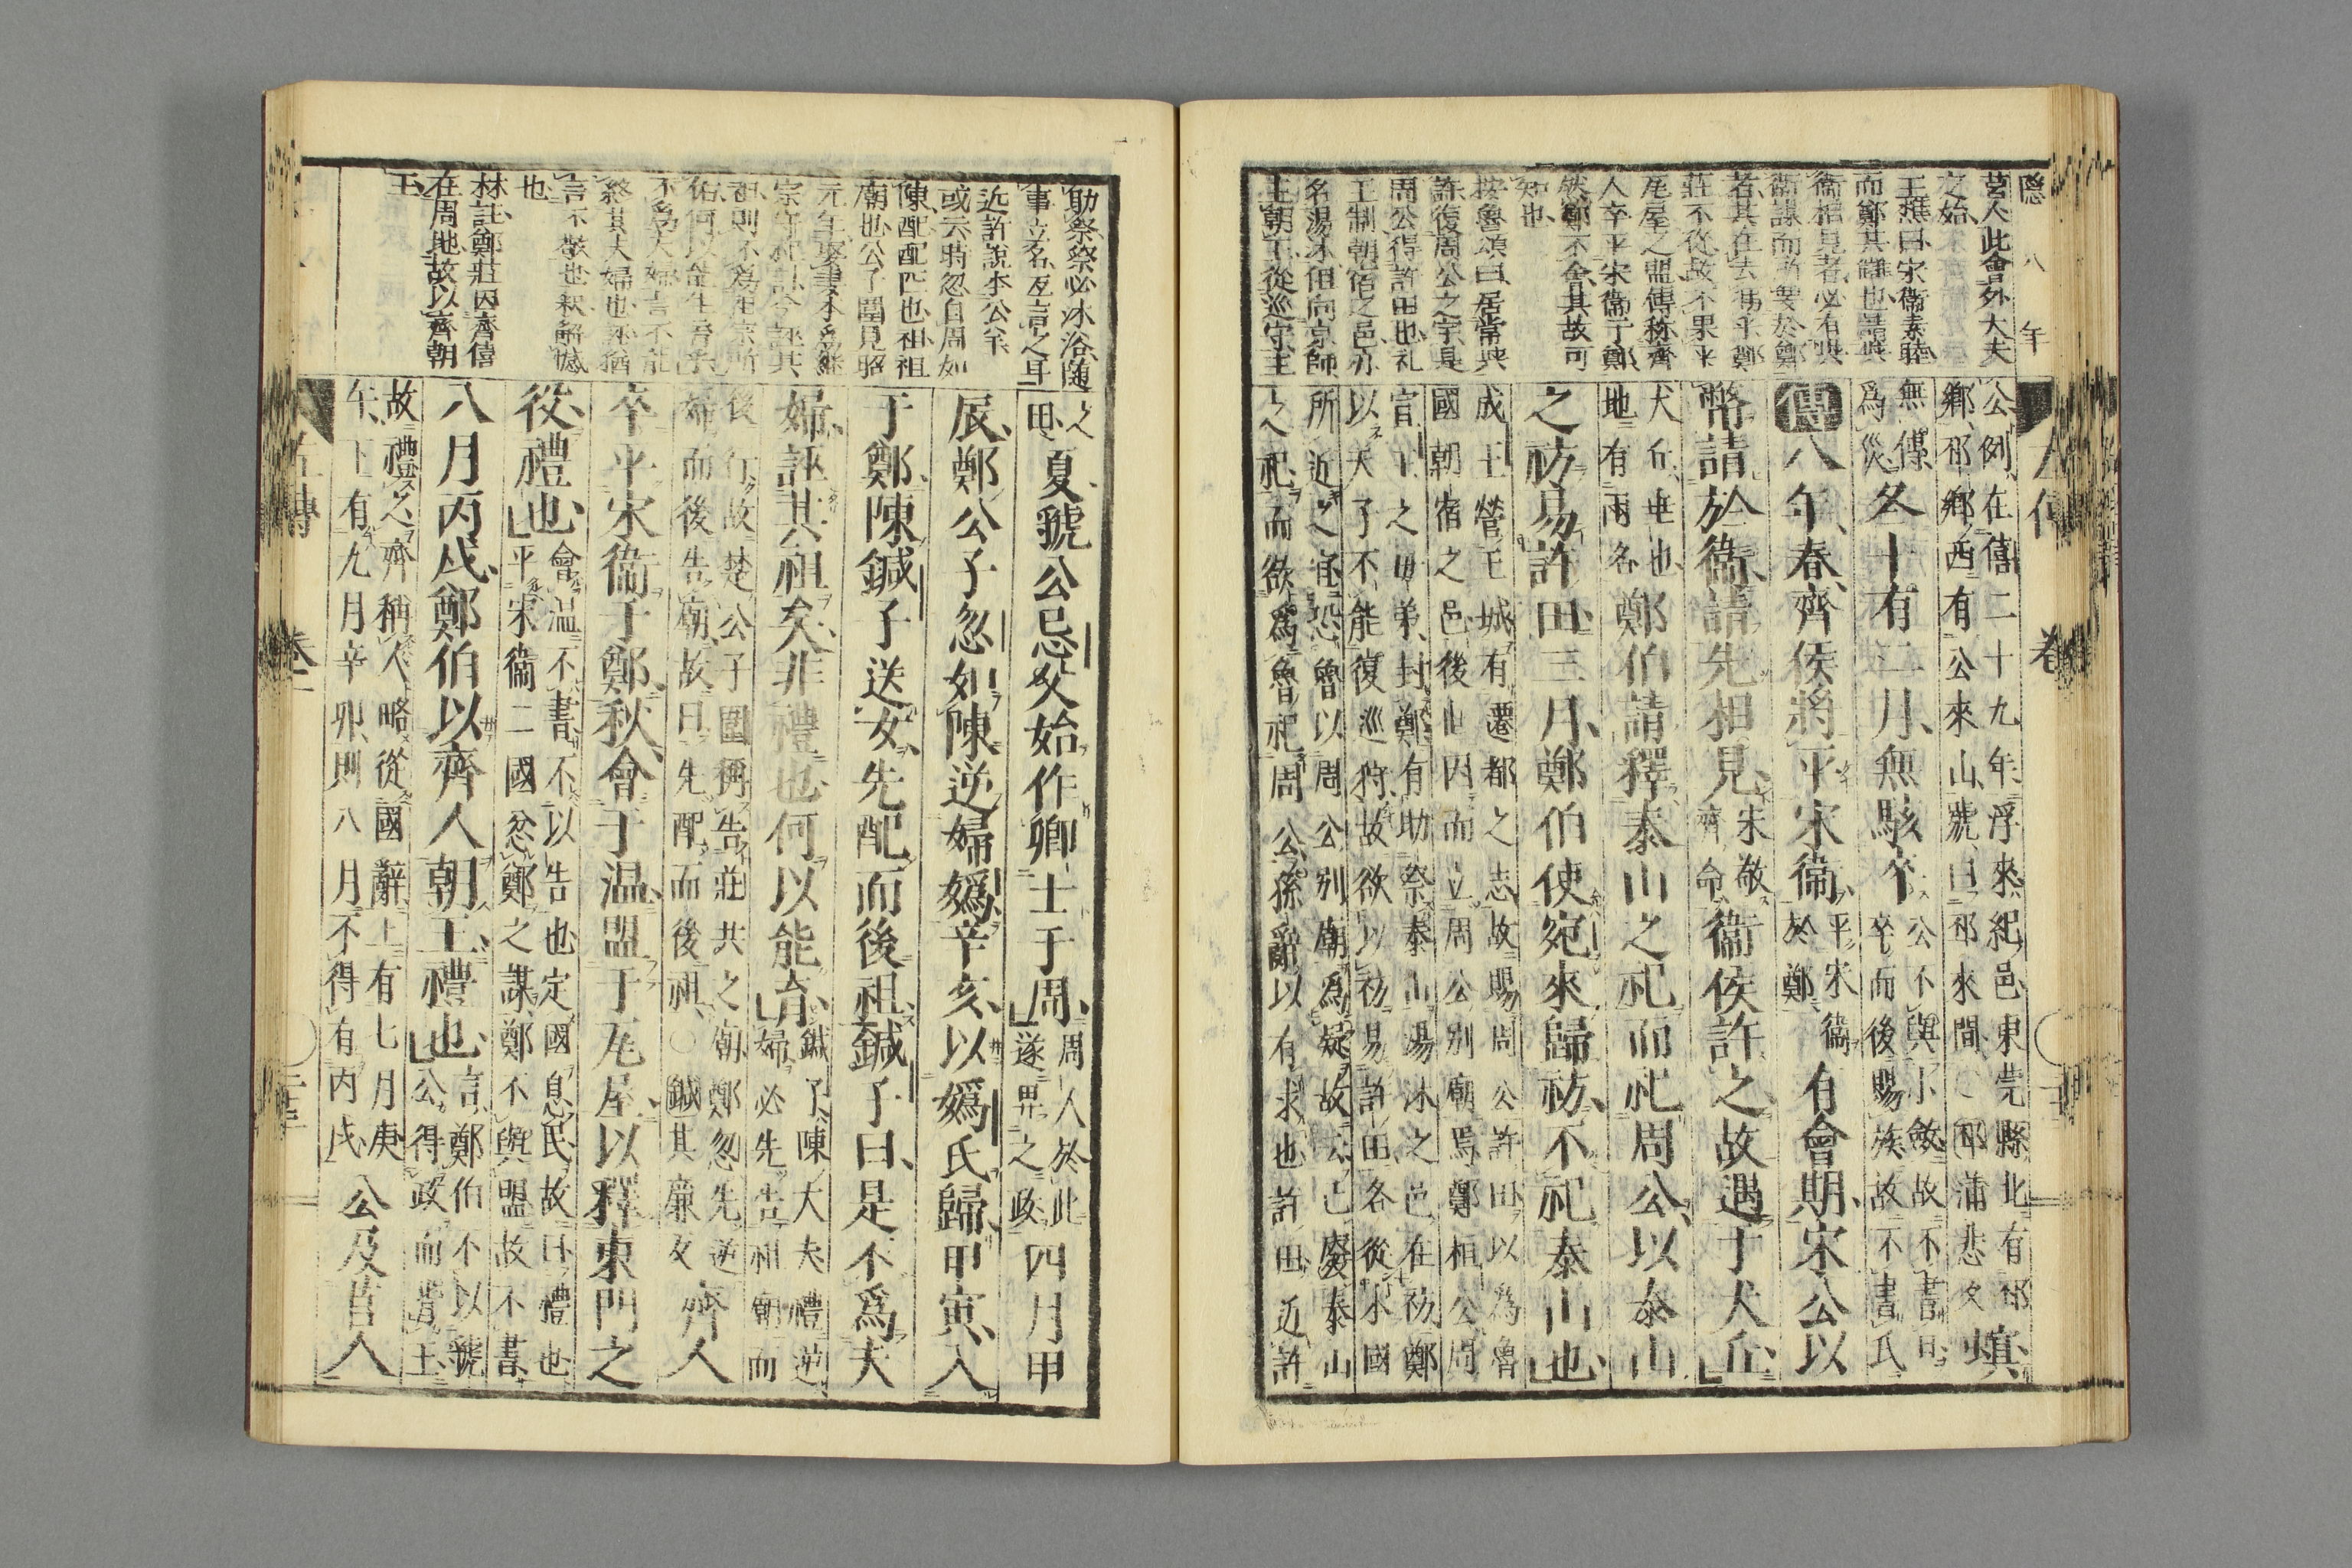 隱八年
莒人此會外大夫
之始
王樵曰宋衞素睦
而鄭其讎也
衞相見者必有與
衞謀而
者其在去
莊不從故不果平
瓦屋之盟傳稱齊
人卒平宋衞于鄭
然鄭不會其故可
知也
按魯頌曰居常與
許復周公之宇是
周公得許田也礼
王制朝宿之邑亦
名湯沐但向京師
主朝王從巡守主
公例在僖二十九年浮來紀邑東莞縣北有邳
鄉邳鄉西有公來山號曰邳來間〇邳蒲悲反螟
無傳
爲災冬十有二月無駭卒公不與小斂故不書日
卒而後賜族故不書氏
傳八年春齊侯將平宋衞平宋衞
於鄭有會期宋公以
幣請於衞請先相見宋敬
齊命衞侯許之故遇于犬丘
犬丘垂也
地有兩名鄭伯請釋泰山之祀而祀周公以泰山
之祊易許田三月鄭伯使宛來歸祊不祀泰山也
成王營王城有遷都之志故賜周公許田以爲魯
國朝宿之邑後世因而立周公別廟焉鄭桓公周
宣王之母弟封鄭有助祭泰山湯沐之邑在祊鄭
以天子不能復巡狩故欲以祊易許田各從本國
所近之宜恐魯以周公別廟爲疑故云已廢泰山
之祀而欲爲魯祀周公孫辭以有求也許田近許
助祭祭必沐浴隨
事立名互言之耳
近許說本公羊
或云時忽自周如
陳配配匹也祖祖
廟也公子圍見昭
元年
宗
祖則不爲祖宗所
佑何以能生育乎
不爲夫婦言不能
終其夫婦也誣猶
言不敬也秋解憾
也
林註鄭莊因齊僖
在周地故以齊朝
王
之
田夏虢公忌父始作卿士于周周人於此
遂畀之政四月甲
辰鄭公子忽如陳逆婦嬀辛亥以嬀氏歸甲寅入
于鄭陳鍼子送女先配而後祖鍼子曰是不爲夫
婦誣其祖矣非禮也何以能育鍼子陳大夫禮逆
婦必先告祖廟而
後行故楚公子圍稱告莊共之廟鄭忽先逆
婦而後告廟故曰先配而後祖〇鍼其廉反齊人
卒平宋衞于鄭秋會于温盟于瓦屋以釋東門之
役禮也會温不書不以告也定國息民故曰禮也
平宋衞二國忿鄭之謀鄭不與盟故不書
八月丙戌鄭伯以齊人朝王禮也言鄭伯不以虢
公得政而背王
故禮之齊稱人略從國辭上有七月庚
午下有九月辛卯則八月不得有丙戌公及莒人
左傳
卷一